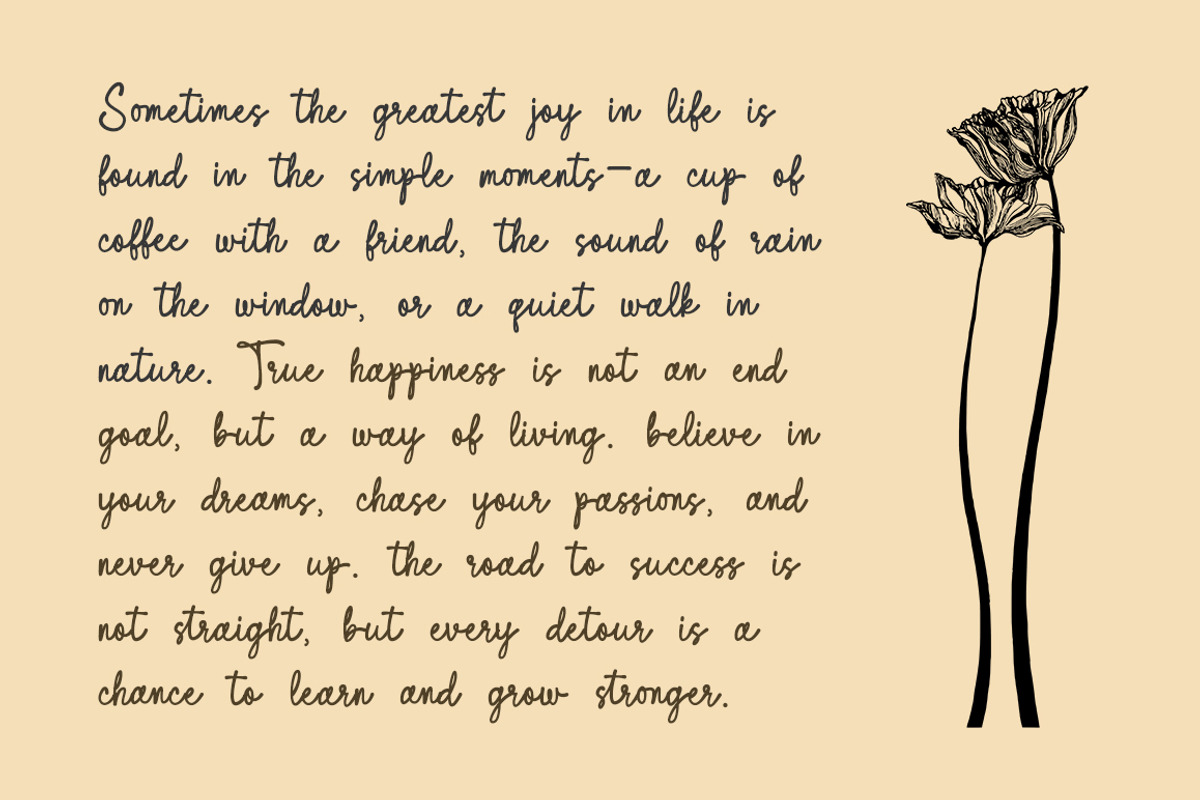 Sometimes the greatest joy in life is
found in the simple moments—a cup of
coffee with a friend, the sound of rain
on the window, or a quiet walk in
nature. True happiness is not an end
goal, but a way of living. believe in
your dreams, chase your passions, and
never give up. the road to success is
not straight, but every detour is a
chance to learn and grow stronger.